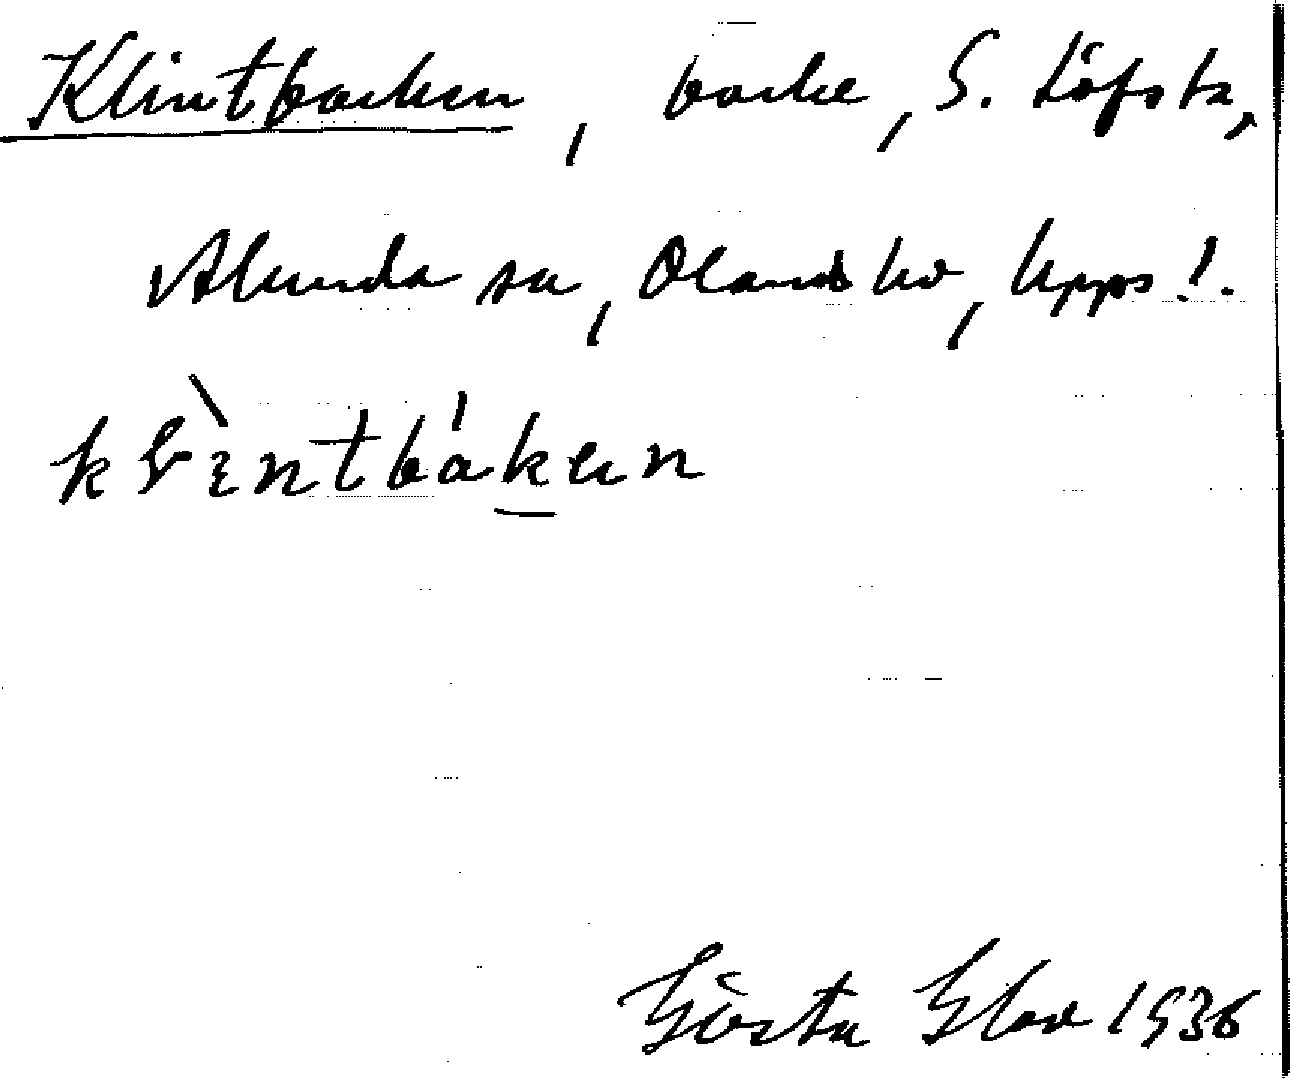 Klintbacken, backe, S. Löfsta,
Alunda sn, Olands hd, Upps!.
klintbaken
Gösta Elav 1936